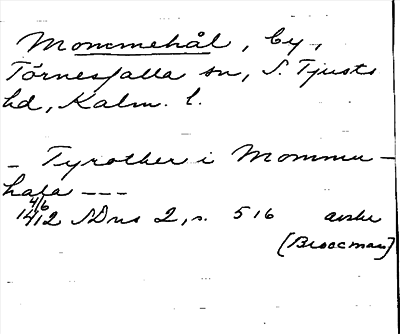 Mommehål, by,
Törnesfalla sn, S. Tjusts
hd, Kalm. l.
– Tyrother i Mommu-
hala ---
14 4/6 12 SDns 2, s. 516 avskr
[Broccman]